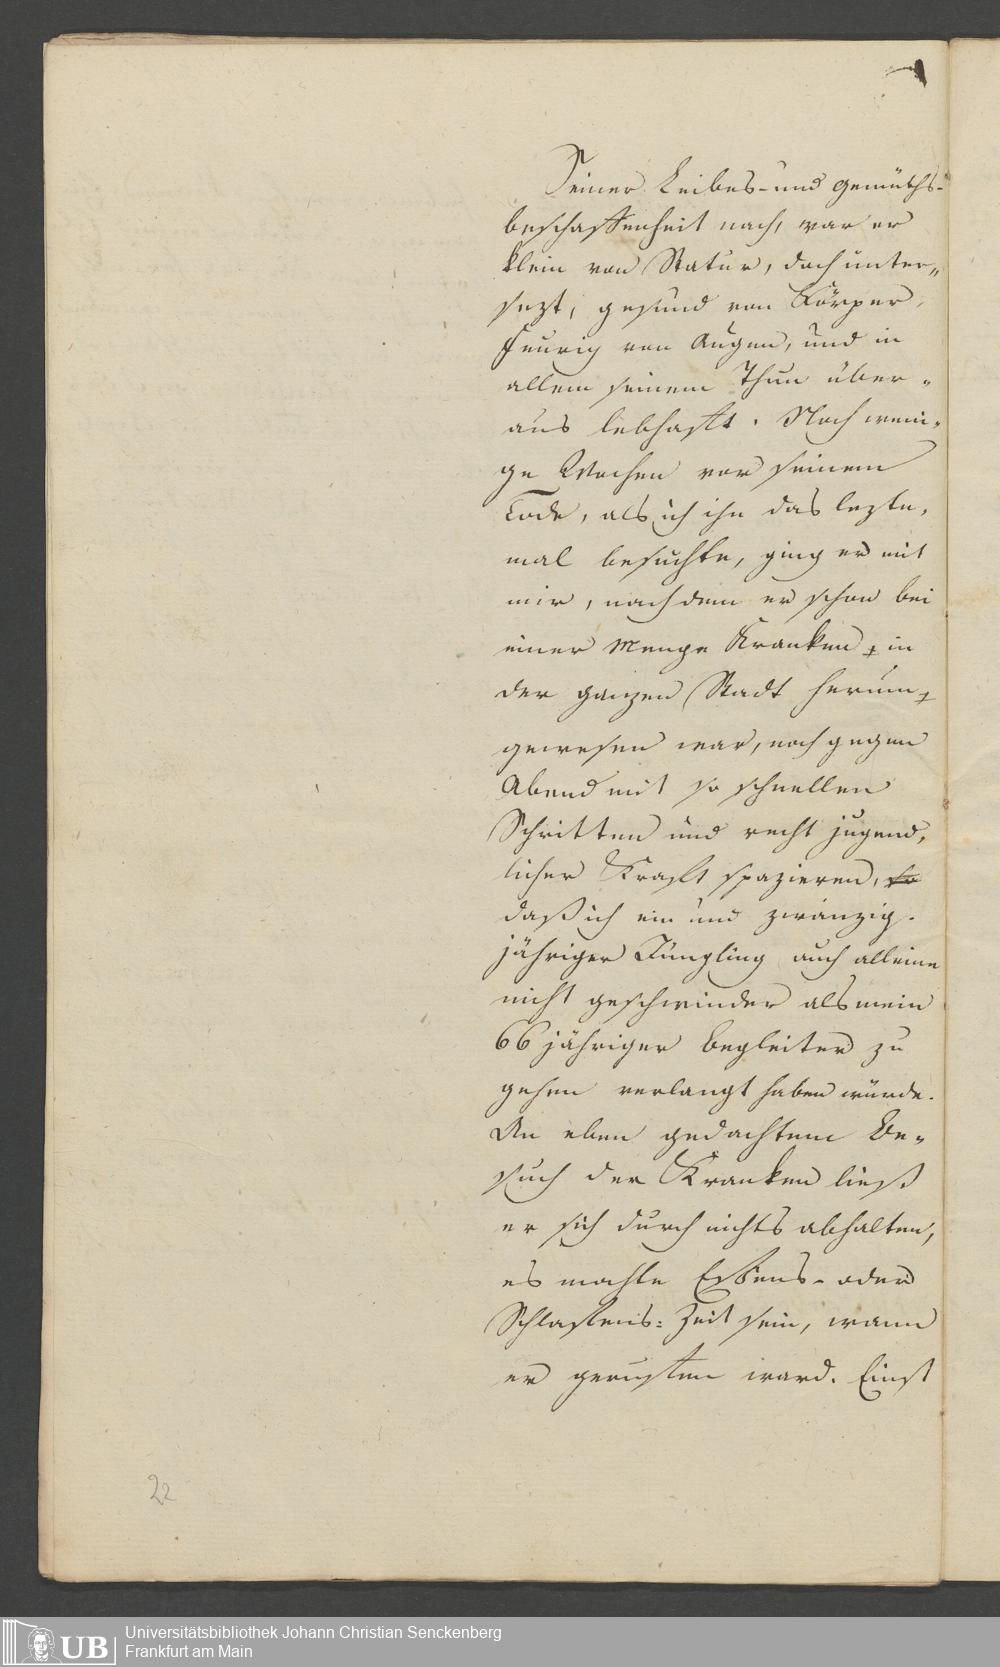 Seiner Leibes- und Gemüths-
beschaffenheit nach, war er
klein von Statur, doch unter„
sezt, gesund von Körper,
feurig von Augen, und in
allem seinem Thun über„
aus lebhafft. Noch weni„
ge Wochen vor seinem
Tode, als ich ihn das lezte,
mal besuchte, ging er mit
mir, nachdem er schon bei
einer Menge Kranken, in
der ganzen Stadt herum,
gewesen war, noch gegen
Abend mit so schnellen
Schritten und recht jugend,
licher Krafft spazieren, so
daß ich ein und zwanzig.
jähriger Jüngling auch alleine
nicht geschwinder als mein
66 jähriger Begleiter zu
gehen verlangt haben würde.
An eben gedachtem Be„
such der Kranken ließ
er sich durch nichts abhalten,
es mochte Essens- oder
Schlaffens-Zeit sein, wann
er geruffen ward. Einst
22
UB
Universitätsbibliothek Johann Christian Senckenberg
Frankfurt am Main